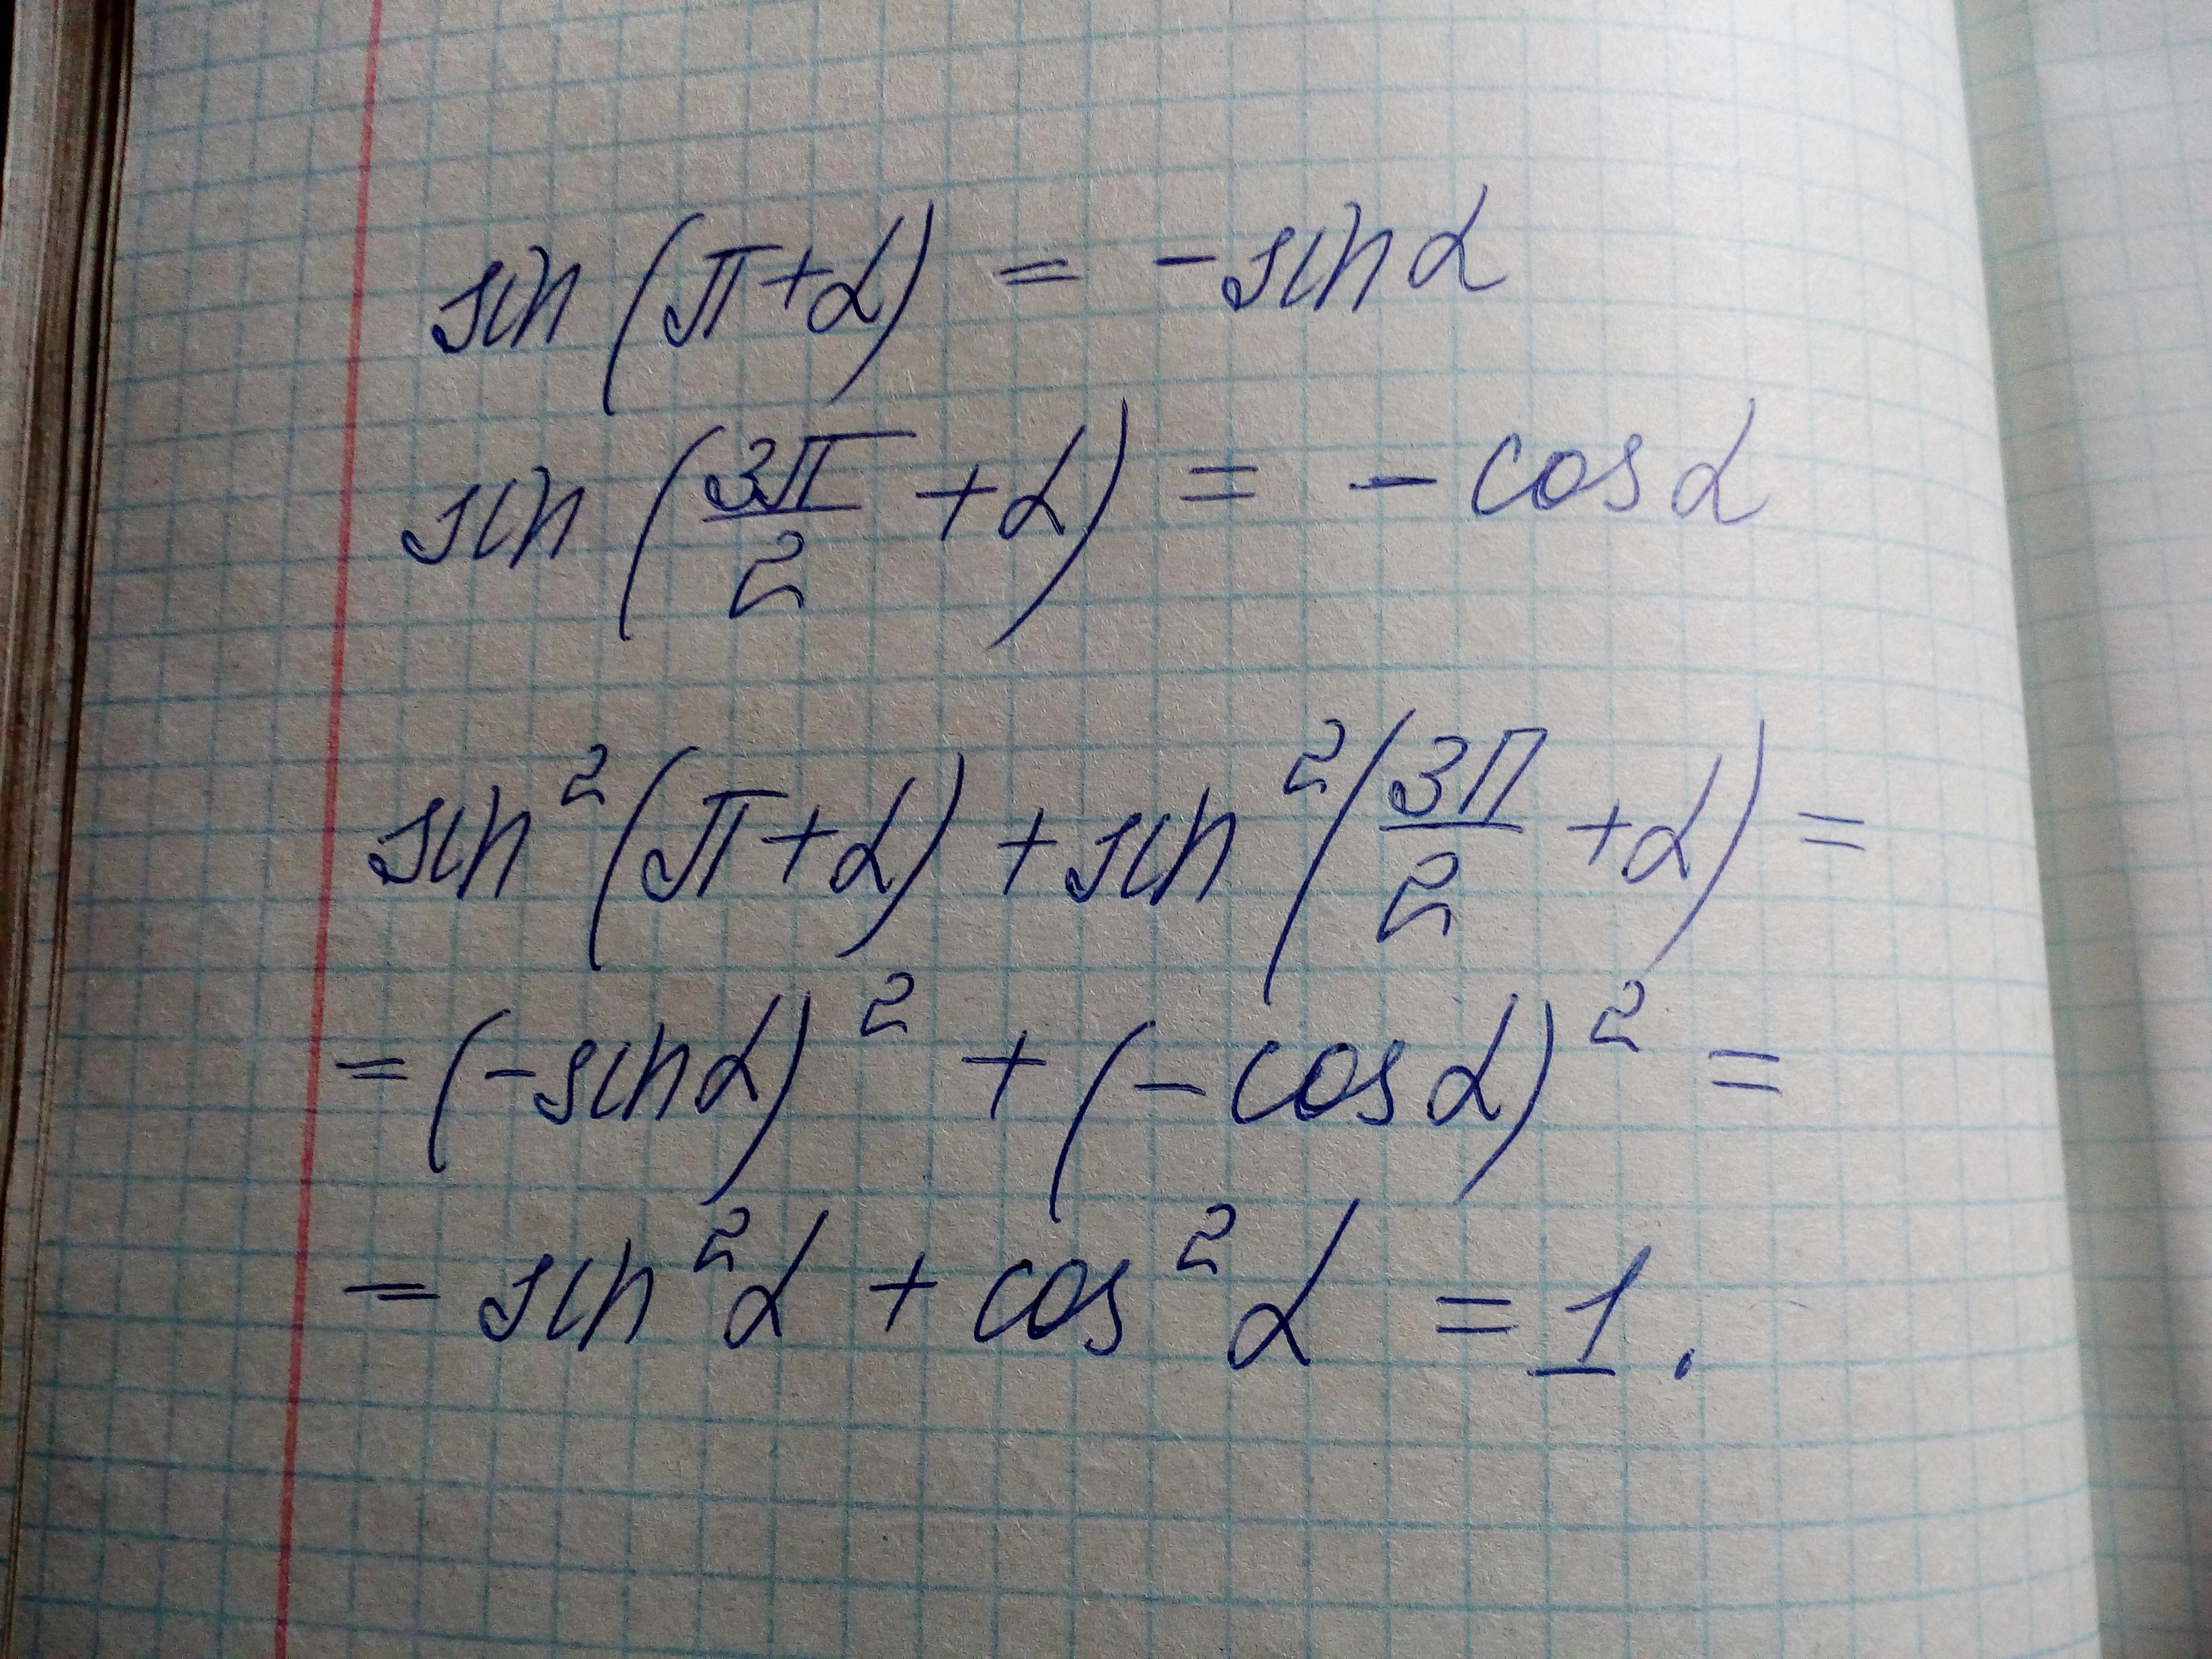 sin (π+α) = -sinα
sin (3π/2 + α) = - cosα
sin²(π+α) + sin²(3π/2 + α) =
= (-sinα)² + (- cosα)² =
= sin²α + cos²α = 1.